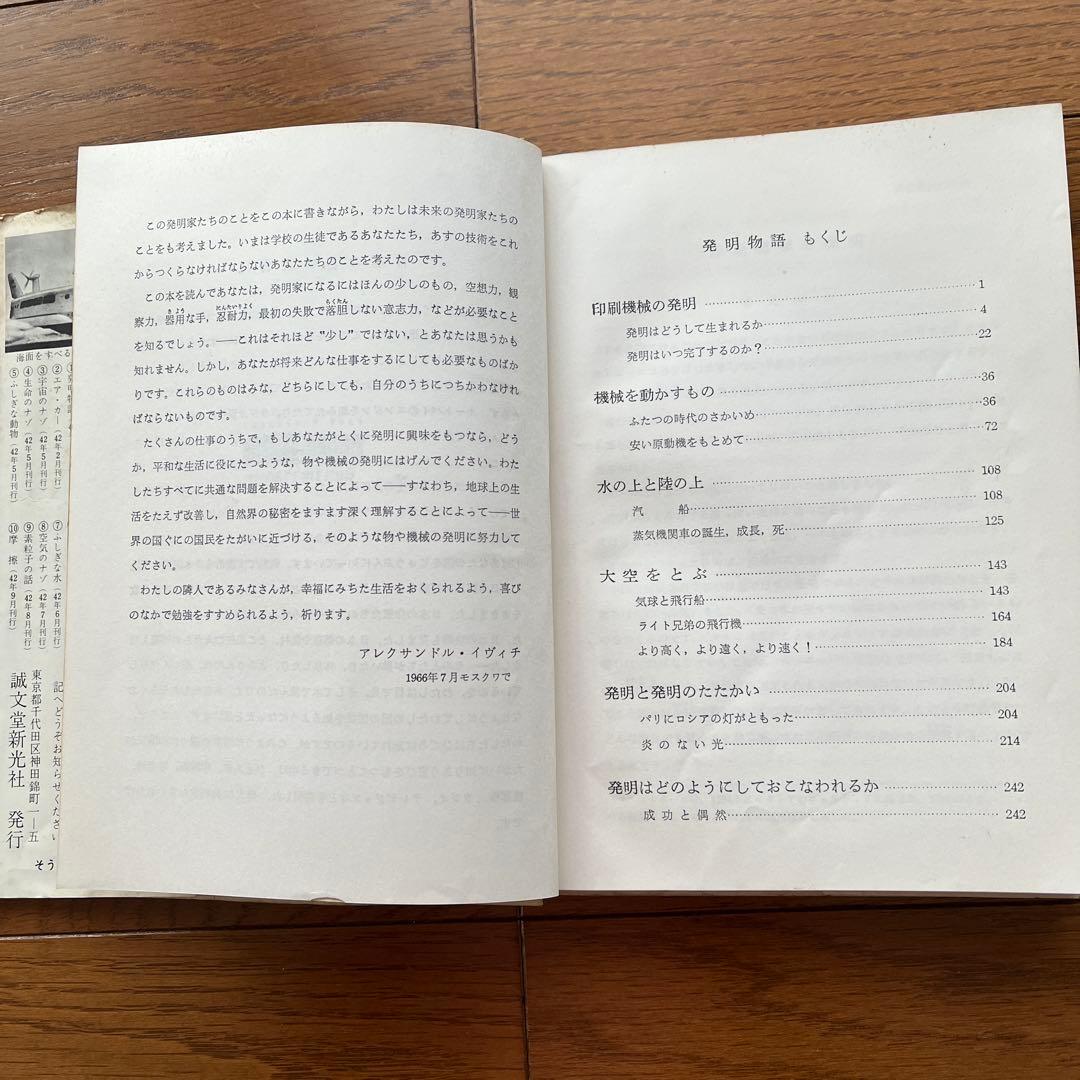 この発明家たちのことをこの本に書きながら，わたしは未来の発明家たちの
ことをも考えました。いまは学校の生徒であるあなたたち，あすの技術をこれ
からつくらなければならないあなたたちのことを考えたのです。
この本を読んであなたは，発明家になるにはほんの少しのもの，空想力，観
察力，器用な手，忍耐力，最初の失敗で落胆しない意志力，などが必要なこと
を知るでしょう。――これはそれほど“少し”ではない，とあなたは思うかも
知れません。しかし，あなたが将来どんな仕事をするにしても必要なものばか
りです。これらのものはみな，どちらにしても，自分のうちにつちかわなけれ
ばならないものです。
たくさんの仕事のうちで，もしあなたがとくに発明に興味をもつなら，どう
か，平和な生活に役にたつような，物や機械の発明にはげんでください。わた
したちすべてに共通な問題を解決することによって――すなわち，地球上の生
活をたえず改善し，自然界の秘密をますます深く理解することによって――世
界の国ぐにの国民をたがいに近づける，そのような物や機械の発明に努力して
ください。
わたしの隣人であるみなさんが，幸福にみちた生活をおくられるよう，喜び
のなかで勉強をすすめられるよう，祈ります。
アレクサンドル・イヴィチ
1966年7月モスクワで
発明物語 もくじ
印刷機械の発明……1
発明はどうして生まれるか……4
発明はいつ完了するのか？……22
機械を動かすもの……36
ふたつの時代のさかいめ……36
安い原動機をもとめて……72
水の上と陸の上……108
汽船……108
蒸気機関車の誕生，成長，死……125
大空をとぶ……143
気球と飛行船……143
ライト兄弟の飛行機……164
より高く，より遠く，より速く！……184
発明と発明のたたかい……204
パリにロシアの灯がともった……204
炎のない光……214
発明はどのようにしておこなわれるか……242
成功と偶然……242
海面をすべる
②エア・カー（42年2月刊行）
③宇宙のナゾ（42年5月刊行）
④生命のナゾ（42年5月刊行）
⑤ふしぎな動物（42年5月刊行）
⑦ふしぎな水（42年6月刊行）
⑧空気のナゾ（42年7月刊行）
⑨素粒子の話（42年8月刊行）
⑩摩擦（42年9月刊行）
記へどうぞお知らせください
東京都千代田区神田錦町一―五
誠文堂新光社 発行
そう